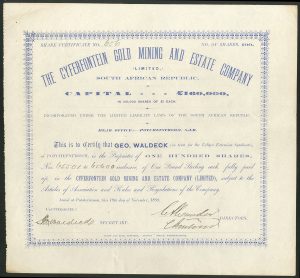 SHARE CERTIFICATE NO. 656 NO. OF SHARES, 100.
THE CYFERFONTEIN GOLD MINING AND ESTATE COMPANY
(LIMITED),
SOUTH AFRICAN REPUBLIC.
CAPITAL . . . £160,000,
IN 160,000 SHARES OF £1 EACH.
INCORPORATED UNDER THE LIMITED LIABILITY LAWS OF THE SOUTH AFRICAN REPUBLIC.
HEAD OFFICE—POTCHEFSTROOM, S.A.R.
This is to Certify that GEO. WALDECK (in trust for the Cyferfontein Syndicate),
of POTCHEFSTROOM, is the Proprietor of ONE HUNDRED SHARES,
Nos. to inclusive of One Pound Sterling each fully paid
up, in the CYFERFONTEIN GOLD MINING AND ESTATE COMPANY (LIMITED), subject to the
Articles of Association and Rules and Regulations of the Company.
Issued at Potchefstroom, this 19th day of November, 1889.
SECRETARY. DIRECTORS.